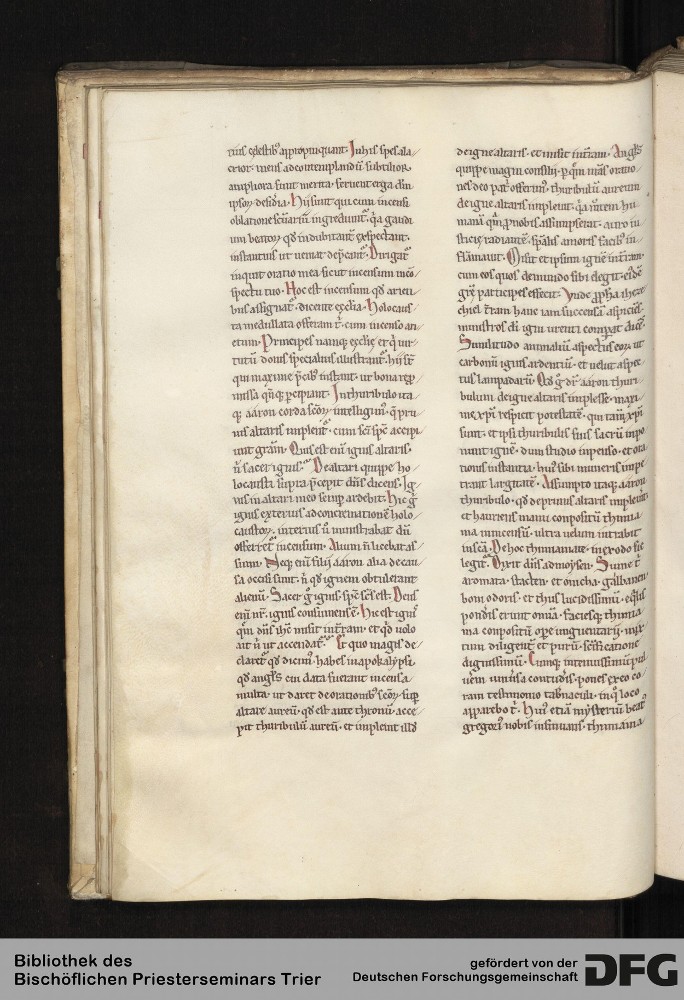 rius celestib' appropinquant. In his spes ala
crior. mens ad contemplandū subtilior.
ampliora sunt merita. feruent erga dm̄
ipsoꝝ desideria. Hii sunt qui cum incensi
oblatione sc̄uariū ingrediunt᷑. q̇a gaudi
um beatoꝝ qd̄ indubitant᷑ exspectant.
instantius ut ueniat dep̄cant᷑. Dirigat᷑
inquit oratio mea sicut incensum in cō
spectu tuo. Hoc est incensum qd̄ arieti
bus assignat᷑. dicente eccl̄ia. Holocaus
ta medullata offeram t'. cum incenso ari
etum. Principes namq; eccl̄ie er q̇ uir
tutū donis specialius illustrant᷑. hii st̄
qui maxime p̄cib' instant. ut bona rep
missa q̄nq; ꝑcipiant. In thuribulo ita
q; aaron corda sc̄oꝝ intelligim'. q̄ pru
nis altaris implent᷑. cum sc̄i sp̄c accipi
unt gr̄am. Quis est eni ignis altaris.
n̄ sacer ignis. De altari quippe ho
locausta supra p̄cepit dn̄s dicens. Ig
nis in altari meo semꝑ ardebit. Hic g̊
ignis exterius ad concremationē holo
caustoꝝ. interius ū ministrabat dū
offerret᷑ incensum. Alium n̄ licebat as
sumi. Neq; eni filii aaron alia de cau
sa occisi sunt. n̄ qd̄ ignem obtulerant
alienū. Sacer g̊ ignis. sp̄c sc̄s est. Deus
eni nr̄. ignis consumens ē. Hic est ignis
quē dn̄s ihc̄ misit in t'ram. et qd̄ uolo
ait n̄ ut accendat᷑. Et quo magis de
claret᷑ qd̄ dicim'. habes in apokalypsi
qd̄ angl̄s cui data fuerant incensa
multa. ut daret de orationib' sc̄oꝝ suꝑ
altare aureū. qd̄ est ante thronū. acce
pit thuribulū aureū. et impleuit illd̄
de igne altaris. et misit in t'ram. Angl̄s
quippe magni consilii. ꝑ quē nr̄as oratio
nes deo patri offerim'. thuribulū aureum
de igne altaris impleuit. q̇a m̄tem hu
manā quā ꝓ nobis assumpserat. auro iu
sticie radiante. sp̄alis amoris facib' in
flāmauit. Misit et ipsum ignē in t'ram.
cum eos quos de mundo sibi elegit. eidē
gr̄e participes effecit. Vnde ꝓph̄a iheze
chiel t'ram hanc iam succensā aspiciēs.
ministros dī igni urenti comparat dicēs.
Similitudo animaliū. aspectus eoꝝ ut
carbonū ignis ardentiū. et uelut aspec
tus lampadarū. Qd̄ g̊ dr̄ aaron thuri
bulum de igne altaris implesse. maxi
me xp̄i respicit potestatē. qui tam xp̄i
sunt. et ipsi thuribulis suis sacrū impo
nunt ignē. dum studio impenso. et ora
tionis instantia. hui' sibi muneris impe
trant largitatē. Assumpto itaq; aaron
thuribulo. qd̄ de prunis altaris impleuit
et hauriens manu compositū thimia
ma in incensū. ultra uelum intrabit
in sc̄a. De hoc thimiamate. in exodo sic
legit᷑. Dixit dn̄s ad moysen. Sume t'
aromata. stacten. et onicha. galbanen
boni odoris. et thus lucidissimū. eq̄lis
pond̄is erunt om̄ia. faciesq; thimia
ma compositū ope unguentarii. mix
tum diligent᷑. et purū. sc̄ificatione
dignissimū. Cumq; in tenuissimū pul
uerem uniuersa contudis. pones ex eo co
ram testimonio tab̄naculi. in q̊ loco
apparebo t'. Hui' etiā mysteriū beat'
gregori' nobis insinuans. thimiama
Bibliothek des
Bischöflichen Priesterseminars Trier
gefördert von der
Deutschen Forschungsgemeinschaft
DFG